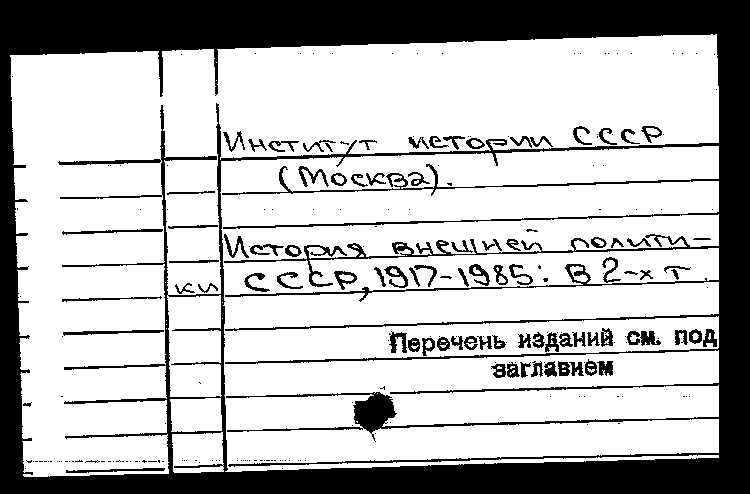 Институт истории СССР
(Москва).
История внешней полити-
ки СССР, 1917-1985: В 2-х т.
Перечень изданий см. под
заглавием